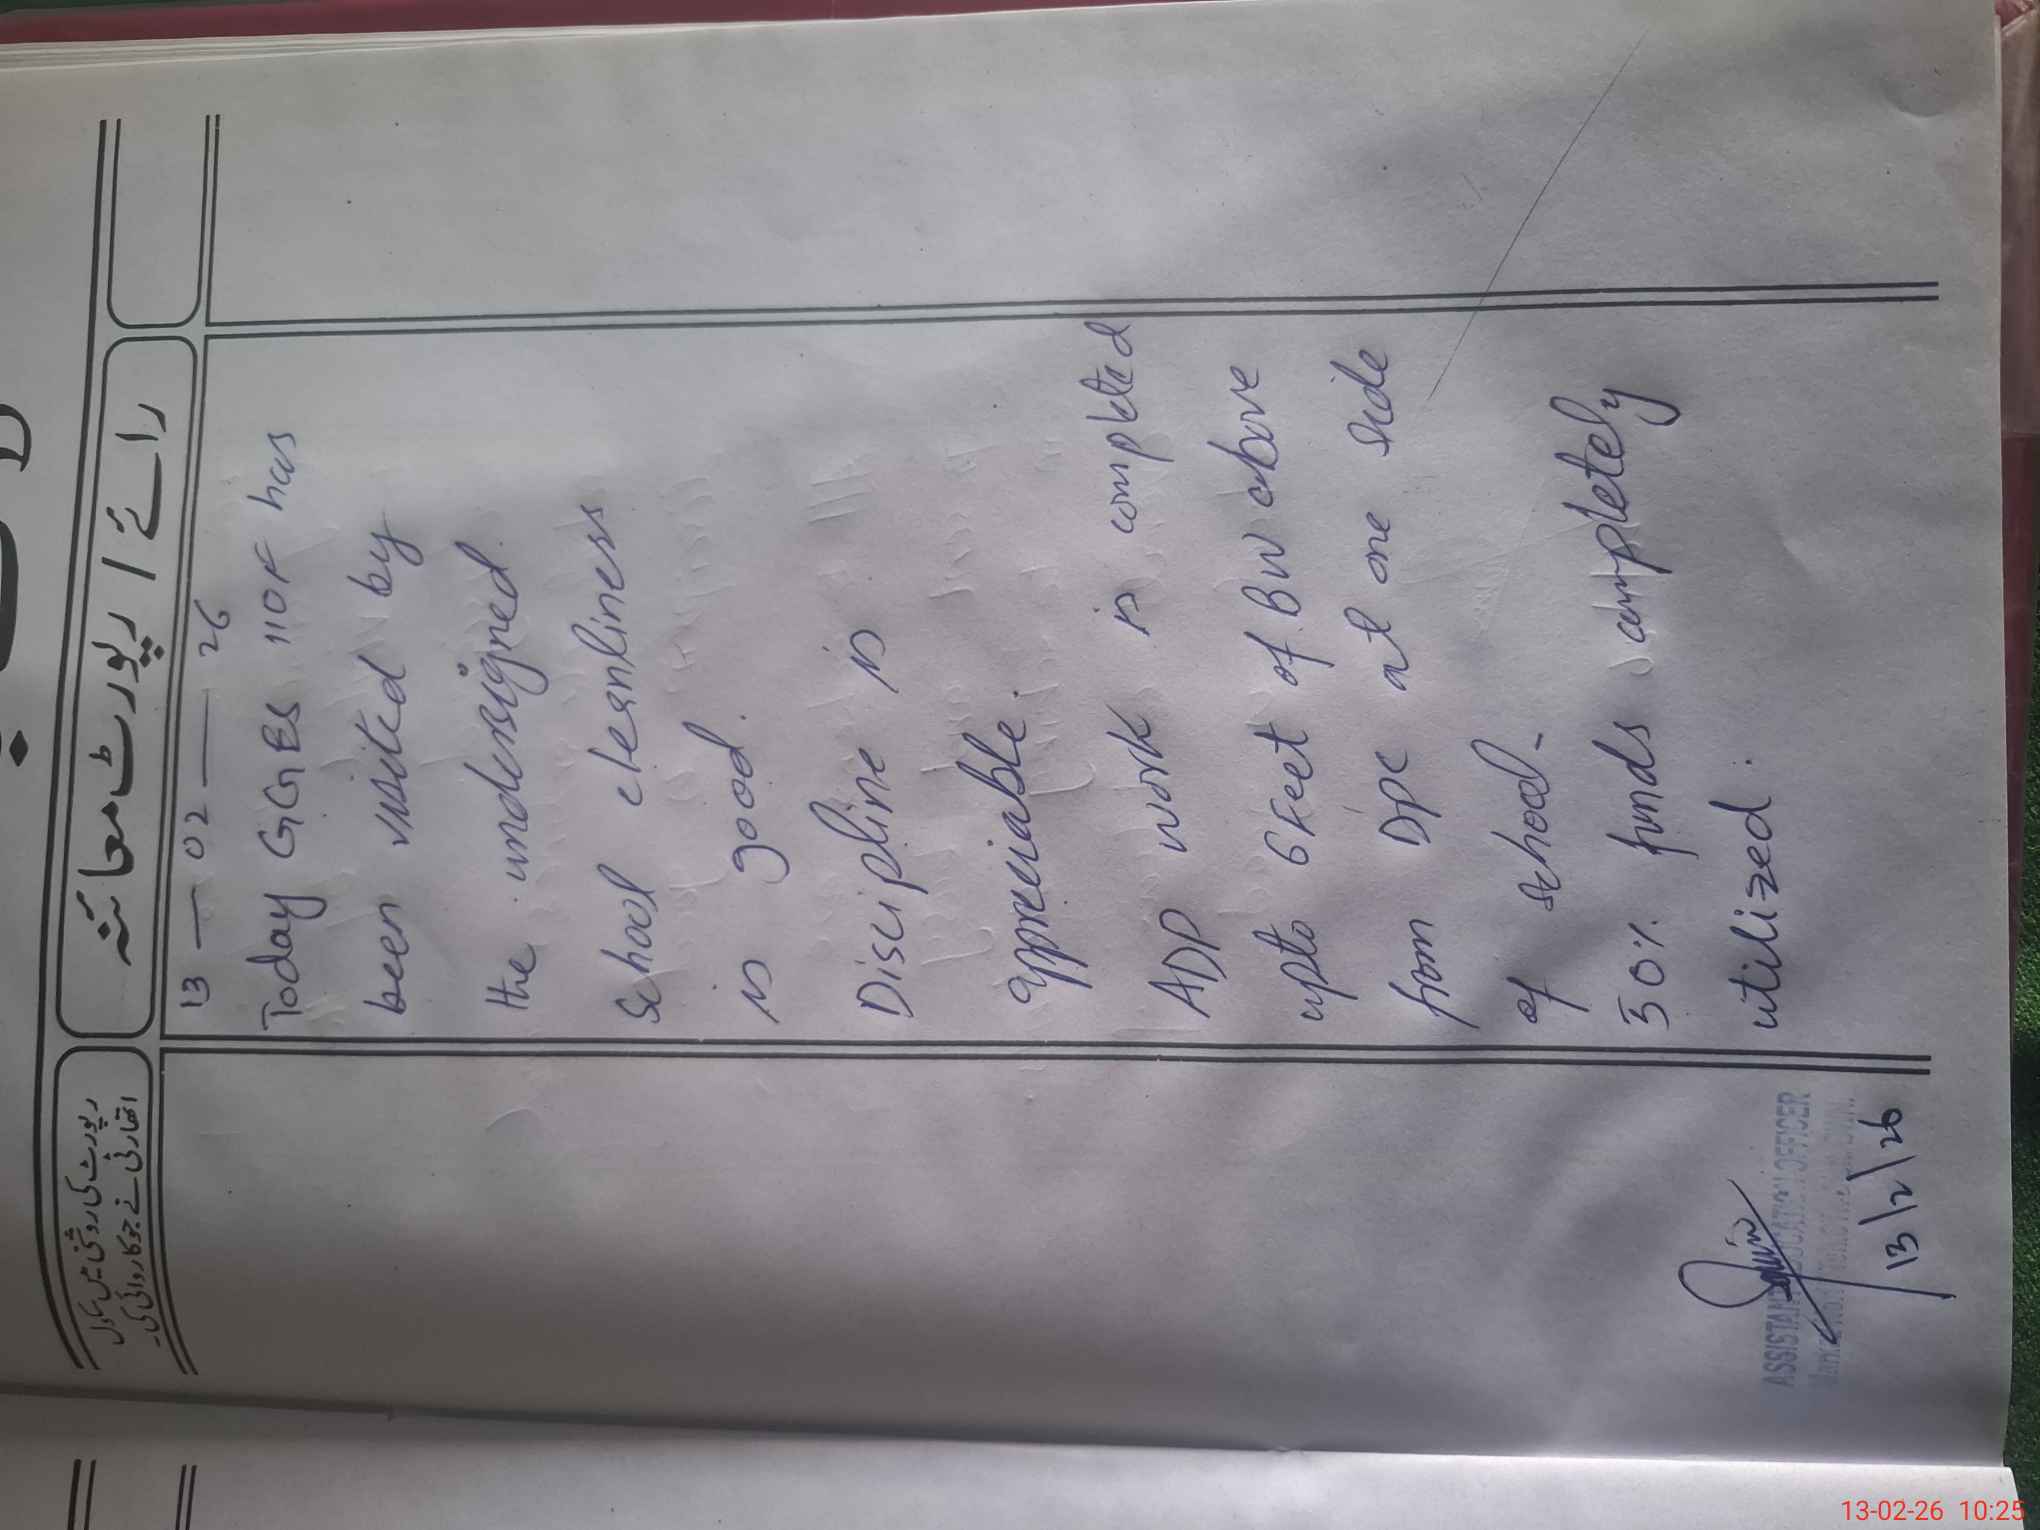 رائے / رپورٹ معائنہ
رپورٹ کی روشنی میں مجاز
اتھارٹی نے جو کاروائی کی۔
13 — 02 — 26
Today GGES 110F has
been visited by
the undersigned.
School cleanliness
is good.
Discipline is
appreciable.
ADP work is completed
upto 6 Feet of BW above
from DPC at one side
of school -
50% funds completely
utilized.
ASSISTANT EDUCATION OFFICER
13/2/26
13-02-26 10:25